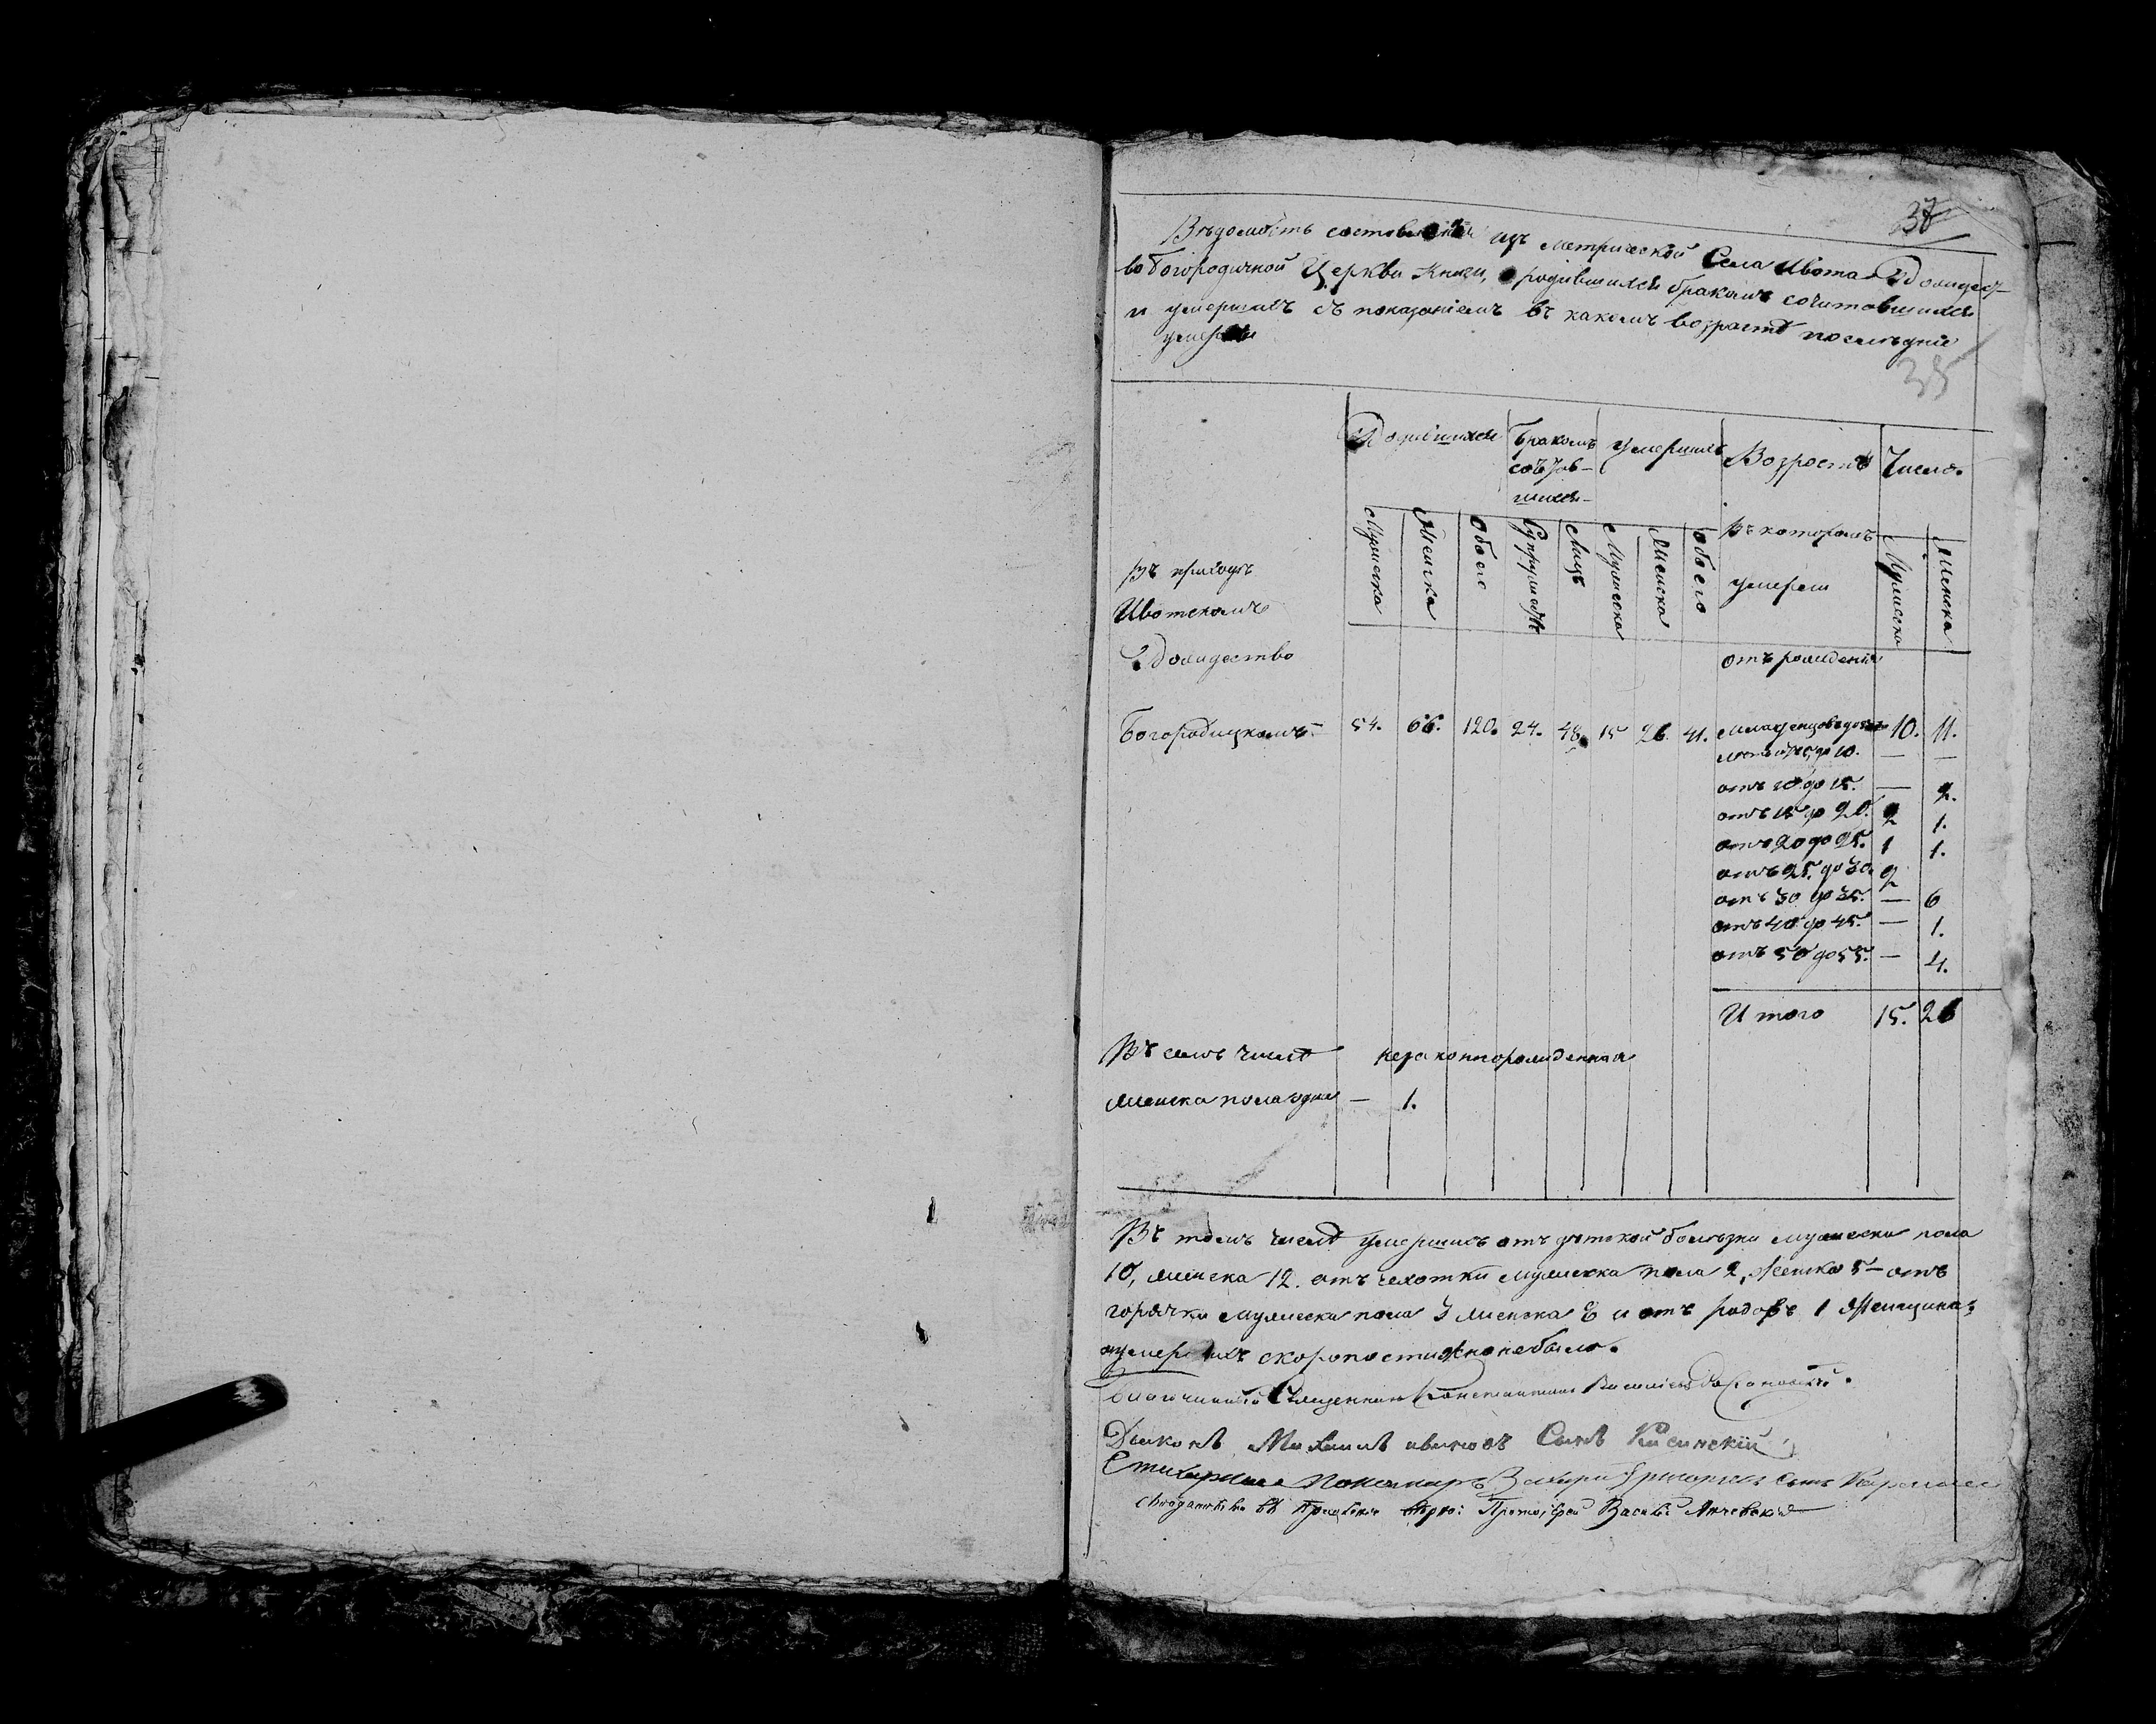 37
Вѣдомость составленная изъ метрической Села Ивота Рождест-
во Богородичной Церкви книги, о родившихся бракомъ сочитавшихся
и умершихъ съ показаніемъ въ какомъ возрастѣ послѣдніе
умерли
35
Родившихся Бракомъ сочетав-шихся- Умершихъ Возрастъ Число.
въ которомъ умерли
Мужеска Женска Обоего Супружествъ Лицъ Мужеска Женска Обоего Мужеска Женска
Въ приходѣ
Ивотскомъ
Рождество отъ рожденія
Богородицкомъ 54. 66. 120. 24. 48. 15 26. 41. младенцовъ до 10. 11.
до 10. — —
отъ 10 до 15. — 2.
отъ 15 до 20. 2 1.
отъ 20 до 25. 1 1.
отъ 25. до 30. 2
отъ 30 до 35. — 6
отъ 40 до 45. — 1.
отъ 50 до 55. — 4.
Итого 15. 26
Въ семъ числѣ незаконнорожденная
женска пола одна — 1.
Въ томъ числѣ умершихъ отъ дѣтской болѣзни мужеска пола
10, женска 12. отъ чехотки мужеска пола 2, женска 5 — отъ
горячки мужеска пола 3 женска 8 и отъ родовъ 1 женщина;
а умершихъ скоропостижно не было.
Благочинный Священникъ Константинъ
Дьяконъ Михаилъ Сынъ
Стихарный Пономаръ Захарій Григорьевъ сынъ
Протоіерей Василій